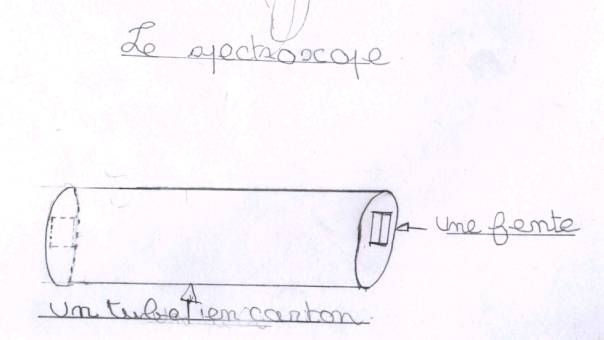 Le spectroscope
une fente
un tube en carton